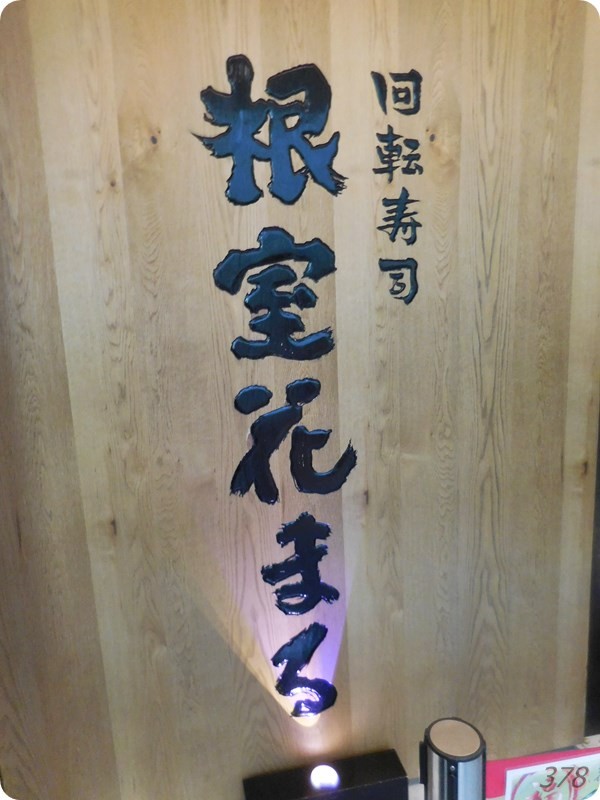 回転寿司
根室花まる
378